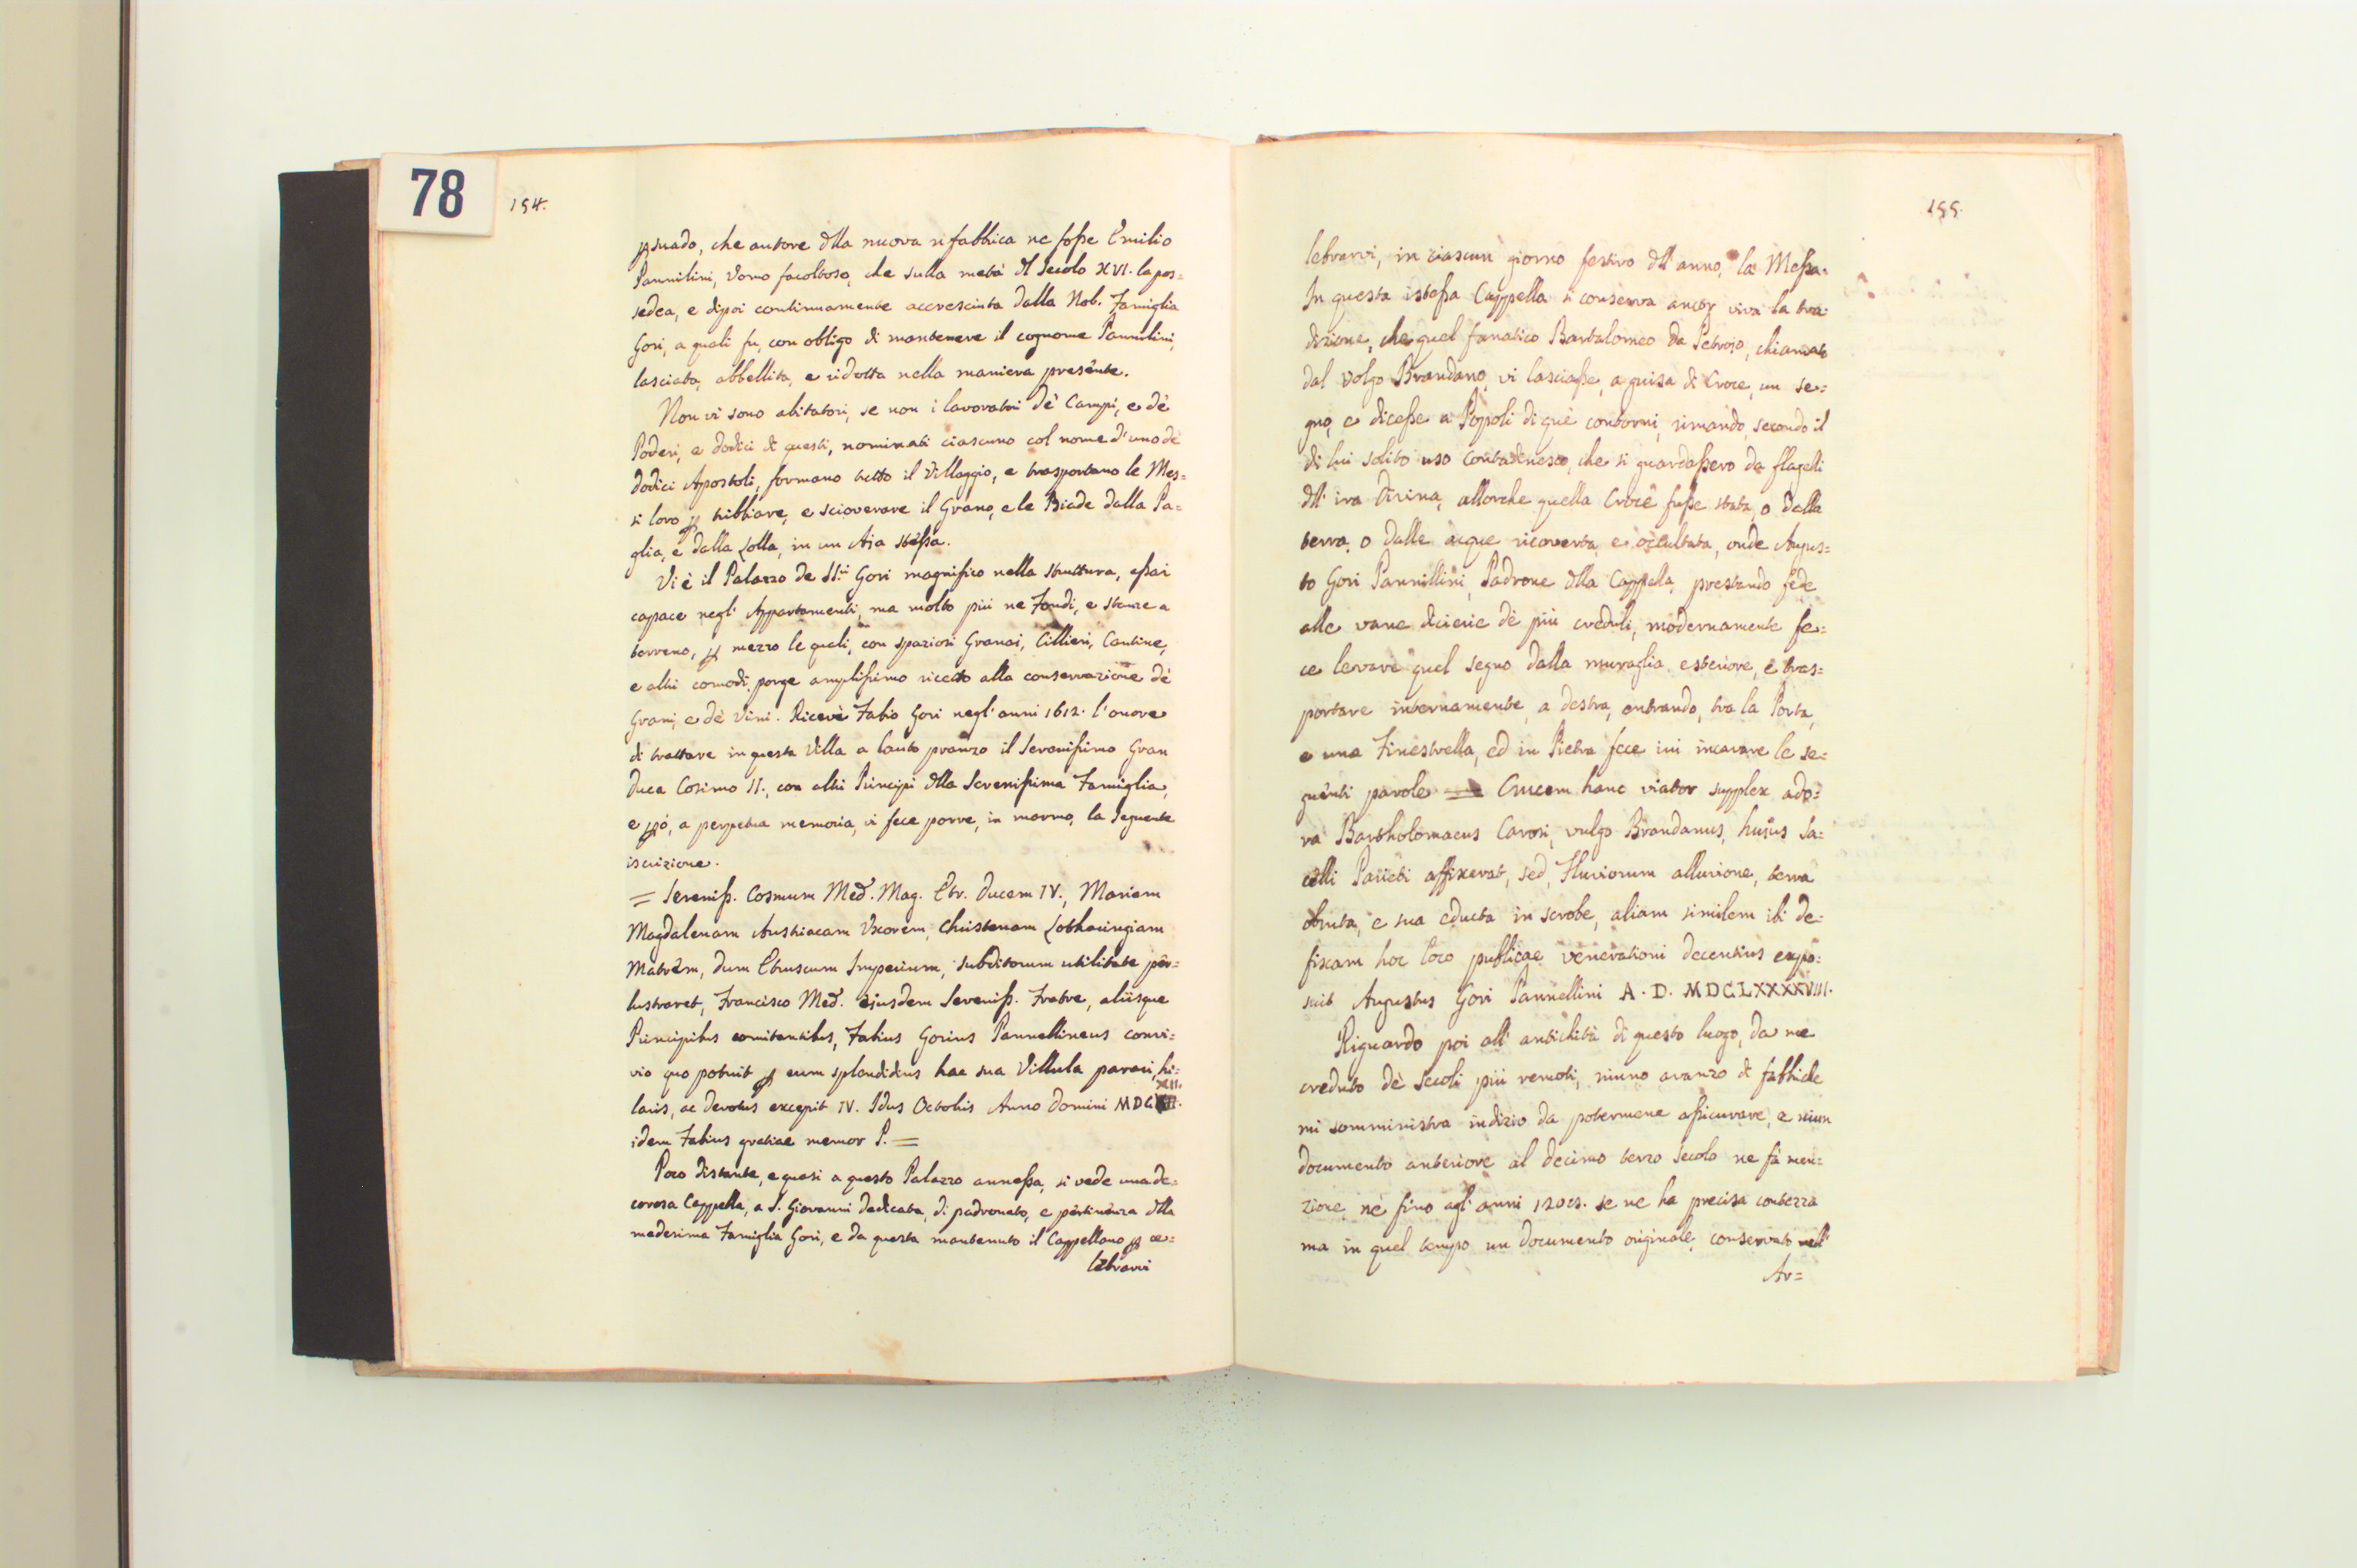 78
154.
psuado, che autore dlla nuova rifabbrica ne fosse Emilio
Pannilini, Uomo facoltoso, che sulla metà dl Secolo XVI. la pos=
sedea, e dipoi continuamente accresciuta dalla Nob. Famiglia
Gori, a quali fu, con obligo di mantenere il cognome Pannilini,
lasciata, abbellita, e ridotta nella maniera presente.
Non vi sono abitatori, se non i lavoratori de' Campi, e de'
Poderi, e dodici di questi, nominati ciascuno col nome d'uno de'
dodici Apostoli, formano tutto il Villaggio, e trasportano le Mes=
si loro p tribbiare, e scioverare il Grano, e le Biade dalla Pa=
glia, e dalla Lolla, in un Aja stessa.
Vi è il Palazzo de SS.ri Gori magnifico nella struttura, assai
capace negl' Appartamenti, ma molto più ne Fondi, e stanze a
terreno, p mezzo le quali, con spaziosi Granai, Cillieri, Cantine,
e altri comodi, porge amplissimo ricetto alla conservazione de'
Grani, e de' Vini. Ricevè Fabio Gori negl' anni 1612. l'onore
di trattare in questa Villa a lauto pranzo il Serenissimo Gran
Duca Cosimo II., con altri Principi dlla Serenissima Famiglia,
e pò, a perpetua memoria, vi fece porre, in marmo, la seguente
iscrizione.
= Sereniss. Cosmum Med. Mag. Etr. Ducem IV., Mariam
Magdalenam Austriacam Uxorem, Christenam Lotharingiam
Matrem, dum Etruscum Imperium, subditorum utilitate per=
lustraret, Francisco Med. ejusdem Sereniss. Fratre, aliisque
Principibus comitantibus, Fabius Gorius Pannellineus convi=
vio quo potuit p eum splendidius hac sua Villula parari, hi=
XII.
laris, ac devotus excepit IV. Idus Octobris Anno Domini MDC
idem Fabius gratiae memor P. =
Poco distante, e quasi a questo Palazzo annessa, si vede una de=
corosa Cappella, a S. Giovanni dedicata, di padronato, e pertinenza dlla
medesima Famiglia Gori, e da questa mantenuto il Cappellano p ce=
lebrarvi
155.
lebrarvi, in ciascun giorno festivo dll' anno, la Messa.
In questa istessa Cappella si conserva ancor viva la tra=
dizione, che quel fanatico Bartalomeo da Petrojo, chiamato
dal Volgo Brandano, vi lasciasse, a guisa di Croce, un se=
gno, e dicesse a Popoli di que' contorni, rimando, secondo il
di lui solito uso contadinesco, che si guardassero da flageli
dll' ira Divina, allorche quella Croce fusse stata, o dalla
terra, o dalle acque ricoverta, e occultata, onde Augus=
to Gori Pannillini, Padrone dlla Cappella, prestando fede
alle vane dicierie de più creduli, modernamente fe=
ce levare quel segno dalla muraglia esteriore, e tras=
portare internamente, a destra, entrando, tra la Porta,
e una Finestrella, ed in Pietra fece ivi incavare le se=
guenti parole = Crucem hanc viator supplex ado=
ra Bartholomaeus Carosi, vulgo Brandanus, hujus Sa=
celli Parieti affixerat, sed, Fluviorum alluvione, terra
obruta, e sua educta in scrobe, aliam similem ibi de=
fixam hoc loco publicae venerationi decentius expo=
suit Augustus Gori Pannellini A. D. MDCLXXXXVIII.
Riguardo poi all' antichità di questo luogo, da me
creduto de' Secoli più remoti, niuno avanzo di fabbriche
mi somministra indizio da potermene assicurare, e niun
documento anteriore al decimo terzo Secolo ne fà men=
zione, nè fino agl' anni 1208. se ne ha precisa contezza
ma in quel tempo un documento originale, conservato nell'
Ar=